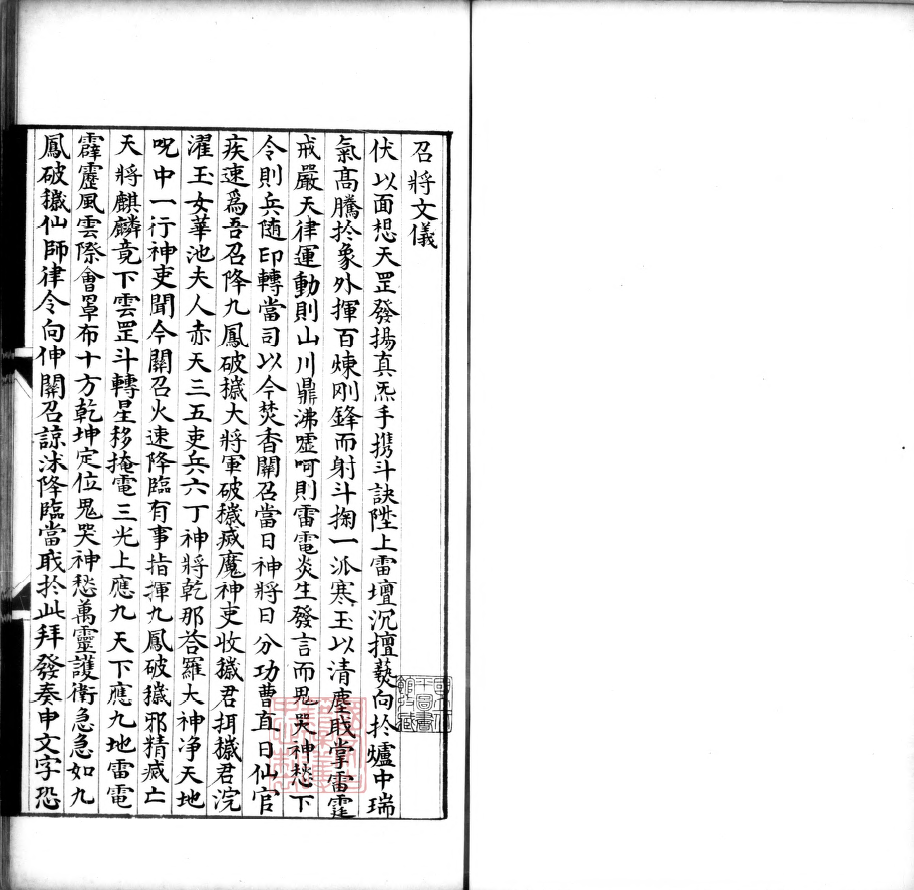 召將文儀
伏以面想天罡發揚真炁手携斗訣陞上雷壇沉擅爇向扵爐中瑞
氣髙騰扵象外揮百煉刚鋒而射斗掬一派寒玉以清塵戢掌雷霆
戒嚴天律運動則山川鼎沸噓呵則雷電炎生發言而鬼哭神愁下
令則兵随印轉當司以今焚香關召當日神將日分功曹直日仙官
疾速爲吾召降九鳳破穢大將軍破穢滅魔神吏收穢君捐穢君浣
濯玉女華池夫人赤天三五吏兵六丁神將乾那荅羅大神净天地
呪中一行神吏聞今關召火速降臨有事指揮九鳳破穢邪精滅亡
天將麒麟竟下雲罡斗轉星移掩電三光上應九天下應九地雷電
霹靂風雲際會罩布十方乾坤定位鬼哭神愁萬靈護衛急急如九
鳳破穢仙師律令向伸關召諒沐降臨當戢扵此拜發奏申文字恐